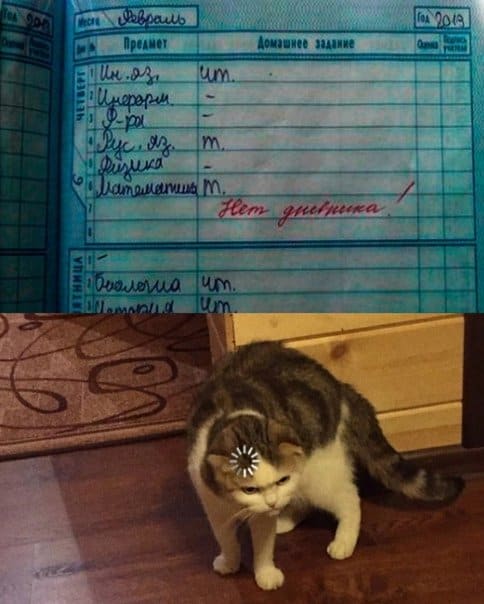 Год 2019 Месяц Февраль Год 2019
Оценка Подпись учителя Дни № Предмет Домашнее задание Оценка Подпись учителя
ЧЕТВЕРГ
6
1 Ин. яз. чт.
2 Информ. -
3 Ф-ра -
4 Рус. яз. т.
5 Физика -
6 Математика т.
7 Нет дневника!
8
ПЯТНИЦА
1 -
2 Биология чт.
3 История чт.